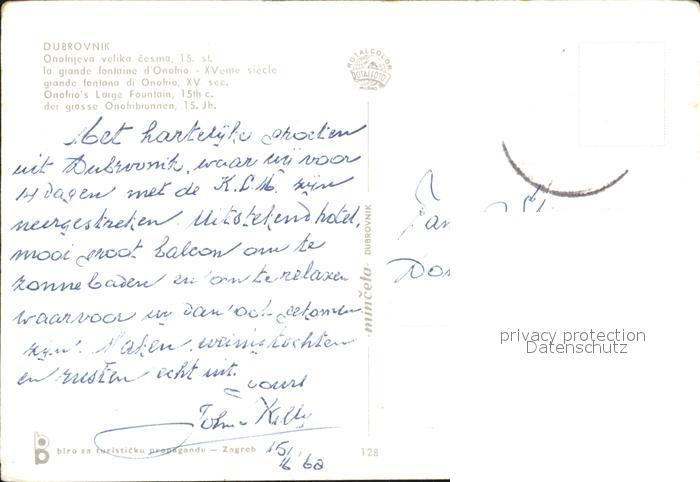 DUBROVNIK
Onofrijeva velika česma, 15. st.
la grande fontaine d'Onofrio - XVeme siècle
grande fontana di Onofrio, XV sec.
Onofrio's Large Fountain, 15th c.
der grosse Onofribrunnen, 15. Jh.
ROTALCOLOR
ROTALFOTO
MILANO
Met hartelijke groeten
uit Dubrovnik, waar wij voor
14 dagen met de K.L.M. zijn
neergestreken. Uitstekend hotel,
mooi groot balcon om te
zonnebaden en om te relaxen
waarvoor wij dan ook gekomen
zijn. Maken weinig tochten
en rusten echt uit.
15/
6 68
minčeta DUBROVNIK
Jan
Do
privacy protection
Datenschutz
biro za turističku propagandu — Zagreb
128